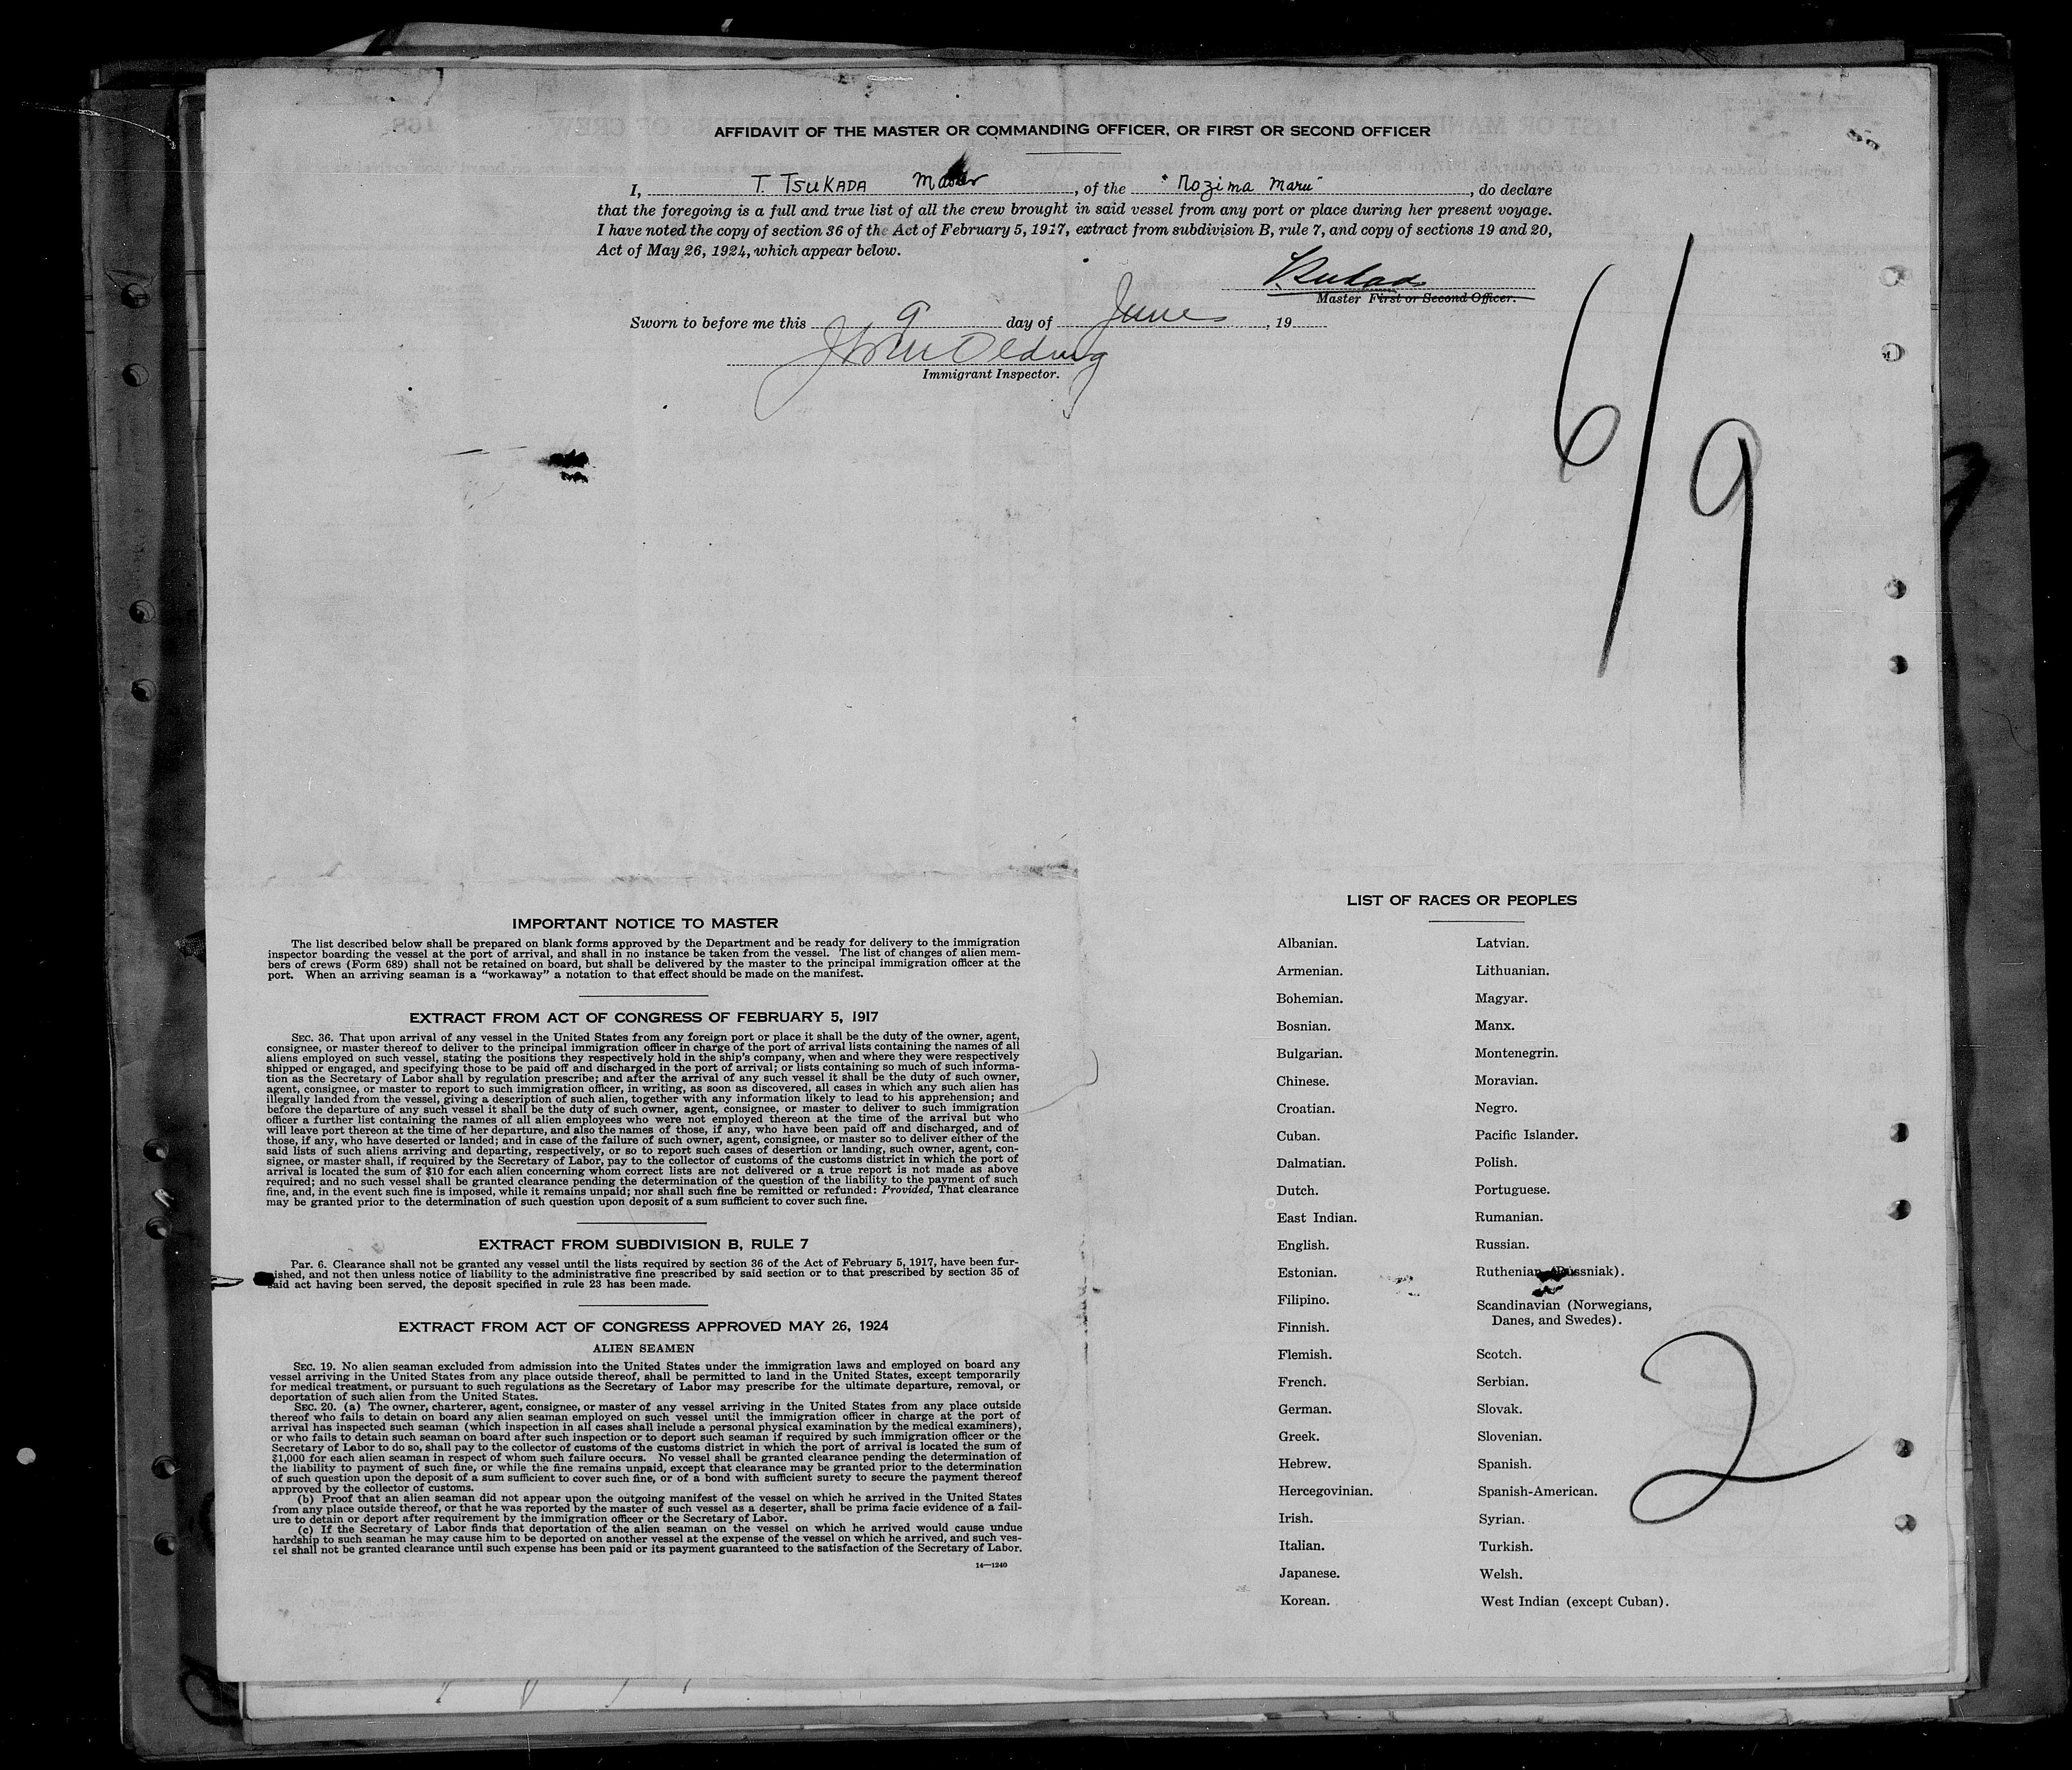 AFFIDAVIT OF THE MASTER OR COMMANDING OFFICER, OR FIRST OR SECOND OFFICER
I, T. TSUKADA Master, of the "Nozima Maru", do declare
that the foregoing is a full and true list of all the crew brought in said vessel from any port or place during her present voyage.
I have noted the copy of section 36 of the Act of February 5, 1917, extract from subdivision B, rule 7, and copy of sections 19 and 20,
Act of May 26, 1924, which appear below.
Master First or Second Officer.
Sworn to before me this 9 day of June, 19
Immigrant Inspector.
6/9
IMPORTANT NOTICE TO MASTER
The list described below shall be prepared on blank forms approved by the Department and be ready for delivery to the immigration
inspector boarding the vessel at the port of arrival, and shall in no instance be taken from the vessel. The list of changes of alien mem-
bers of crews (Form 689) shall not be retained on board, but shall be delivered by the master to the principal immigration officer at the
port. When an arriving seaman is a "workaway" a notation to that effect should be made on the manifest.
EXTRACT FROM ACT OF CONGRESS OF FEBRUARY 5, 1917
SEC. 36. That upon arrival of any vessel in the United States from any foreign port or place it shall be the duty of the owner, agent,
consignee, or master thereof to deliver to the principal immigration officer in charge of the port of arrival lists containing the names of all
aliens employed on such vessel, stating the positions they respectively hold in the ship's company, when and where they were respectively
shipped or engaged, and specifying those to be paid off and discharged in the port of arrival; or lists containing so much of such informa-
tion as the Secretary of Labor shall by regulation prescribe; and after the arrival of any such vessel it shall be the duty of such owner,
agent, consignee, or master to report to such immigration officer, in writing, as soon as discovered, all cases in which any such alien has
illegally landed from the vessel, giving a description of such alien, together with any information likely to lead to his apprehension; and
before the departure of any such vessel it shall be the duty of such owner, agent, consignee, or master to deliver to such immigration
officer a further list containing the names of all alien employees who were not employed thereon at the time of the arrival but who
will leave port thereon at the time of her departure, and also the names of those, if any, who have been paid off and discharged, and of
those, if any, who have deserted or landed; and in case of the failure of such owner, agent, consignee, or master so to deliver either of the
said lists of such aliens arriving and departing, respectively, or so to report such cases of desertion or landing, such owner, agent, con-
signee, or master shall, if required by the Secretary of Labor, pay to the collector of customs of the customs district in which the port of
arrival is located the sum of $10 for each alien concerning whom correct lists are not delivered or a true report is not made as above
required; and no such vessel shall be granted clearance pending the determination of the question of the liability to the payment of such
fine, and, in the event such fine is imposed, while it remains unpaid; nor shall such fine be remitted or refunded: Provided, That clearance
may be granted prior to the determination of such question upon deposit of a sum sufficient to cover such fine.
EXTRACT FROM SUBDIVISION B, RULE 7
PAR. 6. Clearance shall not be granted any vessel until the lists required by section 36 of the Act of February 5, 1917, have been fur-
nished, and not then unless notice of liability to the administrative fine prescribed by said section or to that prescribed by section 35 of
said act having been served, the deposit specified in rule 23 has been made.
EXTRACT FROM ACT OF CONGRESS APPROVED MAY 26, 1924
ALIEN SEAMEN
SEC. 19. No alien seaman excluded from admission into the United States under the immigration laws and employed on board any
vessel arriving in the United States from any place outside thereof, shall be permitted to land in the United States, except temporarily
for medical treatment, or pursuant to such regulations as the Secretary of Labor may prescribe for the ultimate departure, removal, or
deportation of such alien from the United States.
SEC. 20. (a) The owner, charterer, agent, consignee, or master of any vessel arriving in the United States from any place outside
thereof who fails to detain on board any alien seaman employed on such vessel until the immigration officer in charge at the port of
arrival has inspected such seaman (which inspection in all cases shall include a personal physical examination by the medical examiners),
or who fails to detain such seaman on board after such inspection or to deport such seaman if required by such immigration officer or the
Secretary of Labor to do so, shall pay to the collector of customs of the customs district in which the port of arrival is located the sum of
$1,000 for each alien seaman in respect of whom such failure occurs. No vessel shall be granted clearance pending the determination of
the liability to payment of such fine, or while the fine remains unpaid, except that clearance may be granted prior to the determination
of such question upon the deposit of a sum sufficient to cover such fine, or of a bond with sufficient surety to secure the payment thereof
approved by the collector of customs.
(b) Proof that an alien seaman did not appear upon the outgoing manifest of the vessel on which he arrived in the United States
from any place outside thereof, or that he was reported by the master of such vessel as a deserter, shall be prima facie evidence of a fail-
ure to detain or deport after requirement by the immigration officer or the Secretary of Labor.
(c) If the Secretary of Labor finds that deportation of the alien seaman on the vessel on which he arrived would cause undue
hardship to such seaman he may cause him to be deported on another vessel at the expense of the vessel on which he arrived, and such ves-
sel shall not be granted clearance until such expense has been paid or its payment guaranteed to the satisfaction of the Secretary of Labor.
14—1240
LIST OF RACES OR PEOPLES
Albanian.
Armenian.
Bohemian.
Bosnian.
Bulgarian.
Chinese.
Croatian.
Cuban.
Dalmatian.
Dutch.
East Indian.
English.
Estonian.
Filipino.
Finnish.
Flemish.
French.
German.
Greek.
Hebrew.
Hercegovinian.
Irish.
Italian.
Japanese.
Korean.
Latvian.
Lithuanian.
Magyar.
Manx.
Montenegrin.
Moravian.
Negro.
Pacific Islander.
Polish.
Portuguese.
Rumanian.
Russian.
Ruthenian (Russniak).
Scandinavian (Norwegians,
Danes, and Swedes).
Scotch.
Serbian.
Slovak.
Slovenian.
Spanish.
Spanish-American.
Syrian.
Turkish.
Welsh.
West Indian (except Cuban).
2